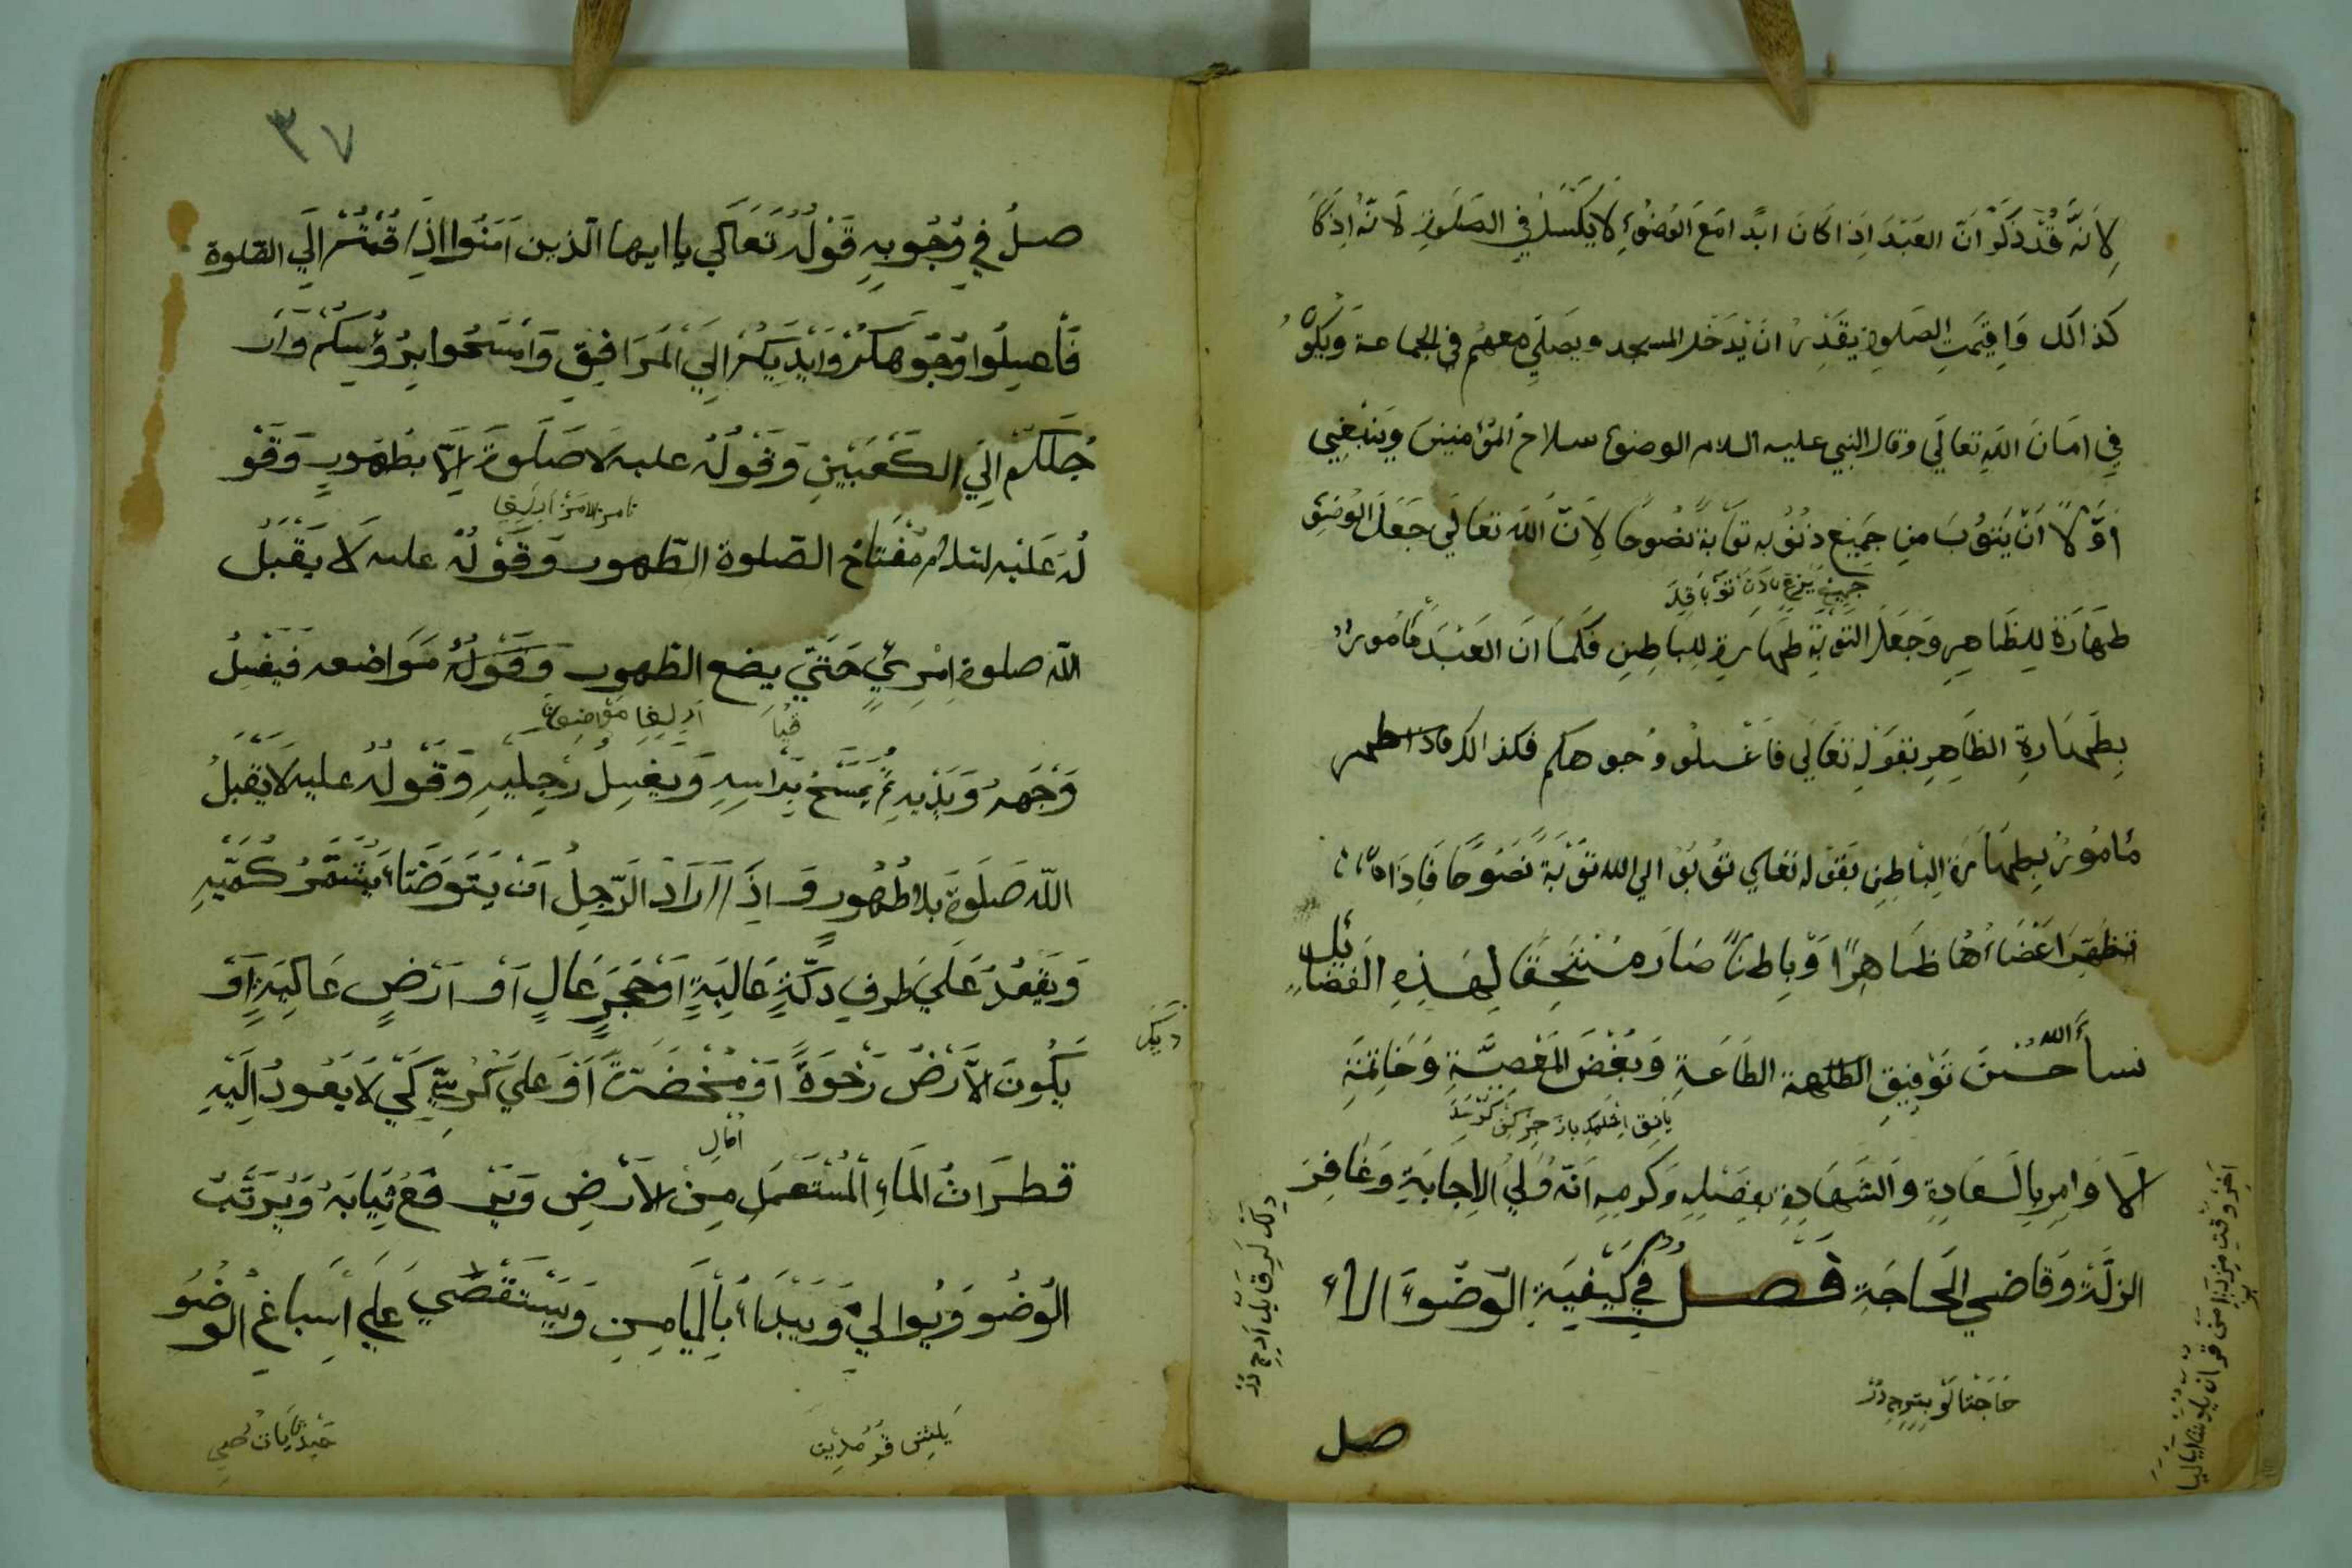 لِاَنَّهُ قَدْ ذَكَرَ اَنَّ العَبْدَ اِذَا كَانَ ابدًا مَعَ الوُضُوءِ لا يَكْسَلُ فِي الصَلَوةِ لَانَّهُ اِذَا كَا
كذالك وَاقِيْمَتِ الصَلوة يَقْدِرُ انْ يَدْخَل المسجد ويصَلِّي معهُم في الجماعة وَيَكُونُ
فِي امَانَ اللّهِ تعالَي وقال النبي عليه السلام الوضوء سلاح المُؤمنينَ ويَنْبَغِي
اَوَّلًا اَنْ يَتُوْبَ مِن جَمِيْعِ ذنُوْبه تَوْبَةً نَصُوحًا لِاَنَّ اللّه تعالَي جَعَلَ الوُضُوءَ
طهَارَةً لِلظَاهِرِ وَجَعَلَ التَوْبَةَ طهَارةً لِلبَاطِنِ فَكمَا انَ العَبْدَ مَامُورٌ
بِطَهَارَةِ الظَاهِرِ بقَوْلِهِ تعَالَي فَاغْسِلُو وُجوهكم فكذالك
مامُوْرٌ بِطهَارَةِ البَاطِنِ بَقوْله تعَالي تُوبُوْ الي الله تَوْبَةً نَصُوْحًا فَاِذَا
تطَهَّرَ اعْضَاءُهَا ظَاهِرًا وَبِاطِنًا صَارَ مُسْتَحِقًا لِهَذِهِ الفضَايِل
نساَءَ اللّه حُسْنَ تَوْفِيقِ الطَاعَةِ وَبُغْضَ المَعْصِيَّةِ وَخَاتِمَةِ
الَاوَامِرِ بِالسَعَادَةِ وَالشَهَادَةِ بفَضْلِهِ وَكَرمِهِ انّهُ وَلِيُّ الاِجَابَةِ وَغَافِرَ
الزلَّةِ وَقَاضي الحَاجَةِ فَصــلٌ فِي كَيْفِيَةِ الوَضُوءِ الا
صل
٣٧
صلُ فِي وُجُوبِهِ قَوْلُهُ تَعَالَي يا ايها الّذين اَمَنُوا اِذَا قُمْتُمْ اِلَي الصّلوة
فَاْغسِلُوا وُجُوهَكُمْ وَاَيْدِيَكُمْ اِلَي المَرَافِقِ وَاَمْسَحُوا بِرُؤُسِكُمْ وَاَر
جُلَكُم اِلَي الكَعْبَيْنِ وَقَوْلُهُ عليه لَا صَلَوةَ اِلّا بطُهُورٍ وَقَوْ
لُهُ عَلَيْه لسلامُ مِفْتَاحُ الصّلوة الطّهور وَقَوْلُهُ عليه لَا يَقْبَلُ
اللّه صلوة امْرِئٍ حَتَّي يضع الطّهور وَقَوْلُهُ مَوَاضعه فَيَغْسِلُ
وَجْهَهُ وَيَدَيْهِ ثُمَّ يَمْسَحُ بِرَاسِهِ وَيَغْسِلُ رِجلَيهِ وَقَوْلُهُ عليه لَا يَقْبَلُ
اللّه صَلَوةً بِلا طُهُورٍ وَاِذَا اَرَادَ الرّجلُ اَنْ يَتَوَضَّاءَ يُشَمِّرُ كُمَّيْهِ
وَيَقْعُدُ عَلَي طرفِ دكَّةٍ عَالِيَةٍ اَوْ حَجَرٍ عَالٍ اَوْ اَرْضٍ عَالِيَةٍ اَوْ
يَكُونَ الاَرْضُ رَخْوَةً اَوْ مُخْضَرَّةً اَوْ عَلَي كُرسِيٍّ كَي لَا يَعُودُ اِلَيْهِ
قطرَاتُ المَاءِ المُسْتَعمَلِ مِنَ الاَرْضِ وَيَرْفَعُ ثِيَابَهُ وَيُرَتِّبُ
الوُضُو وَيُوالِي وَيَبْدَاءُ بِالْمَيَامِنِ وَيَسْتَقْصَي عَلَي اَسبَاغِ الوضُو